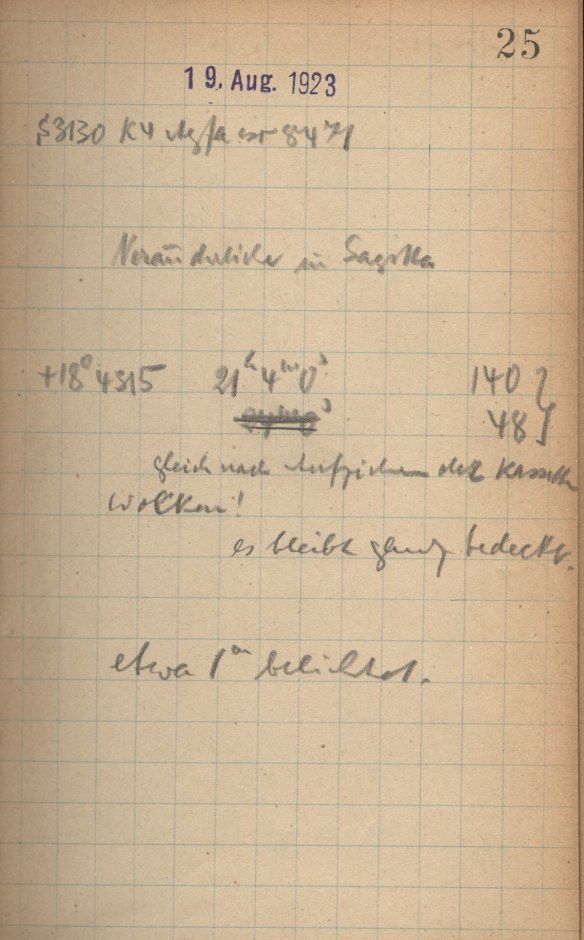 25
19. Aug. 1923
S3130 K4 Agfa 8471
Veränderlicher in Sagitta
+18° 4315 21ʰ 4ᵐ 0ˢ 140 }
48 }
gleich nach Aufziehen der Kassette
Wolken!
es bleibt ganz bedeckt.
etwa 1ᵐ belichtet.